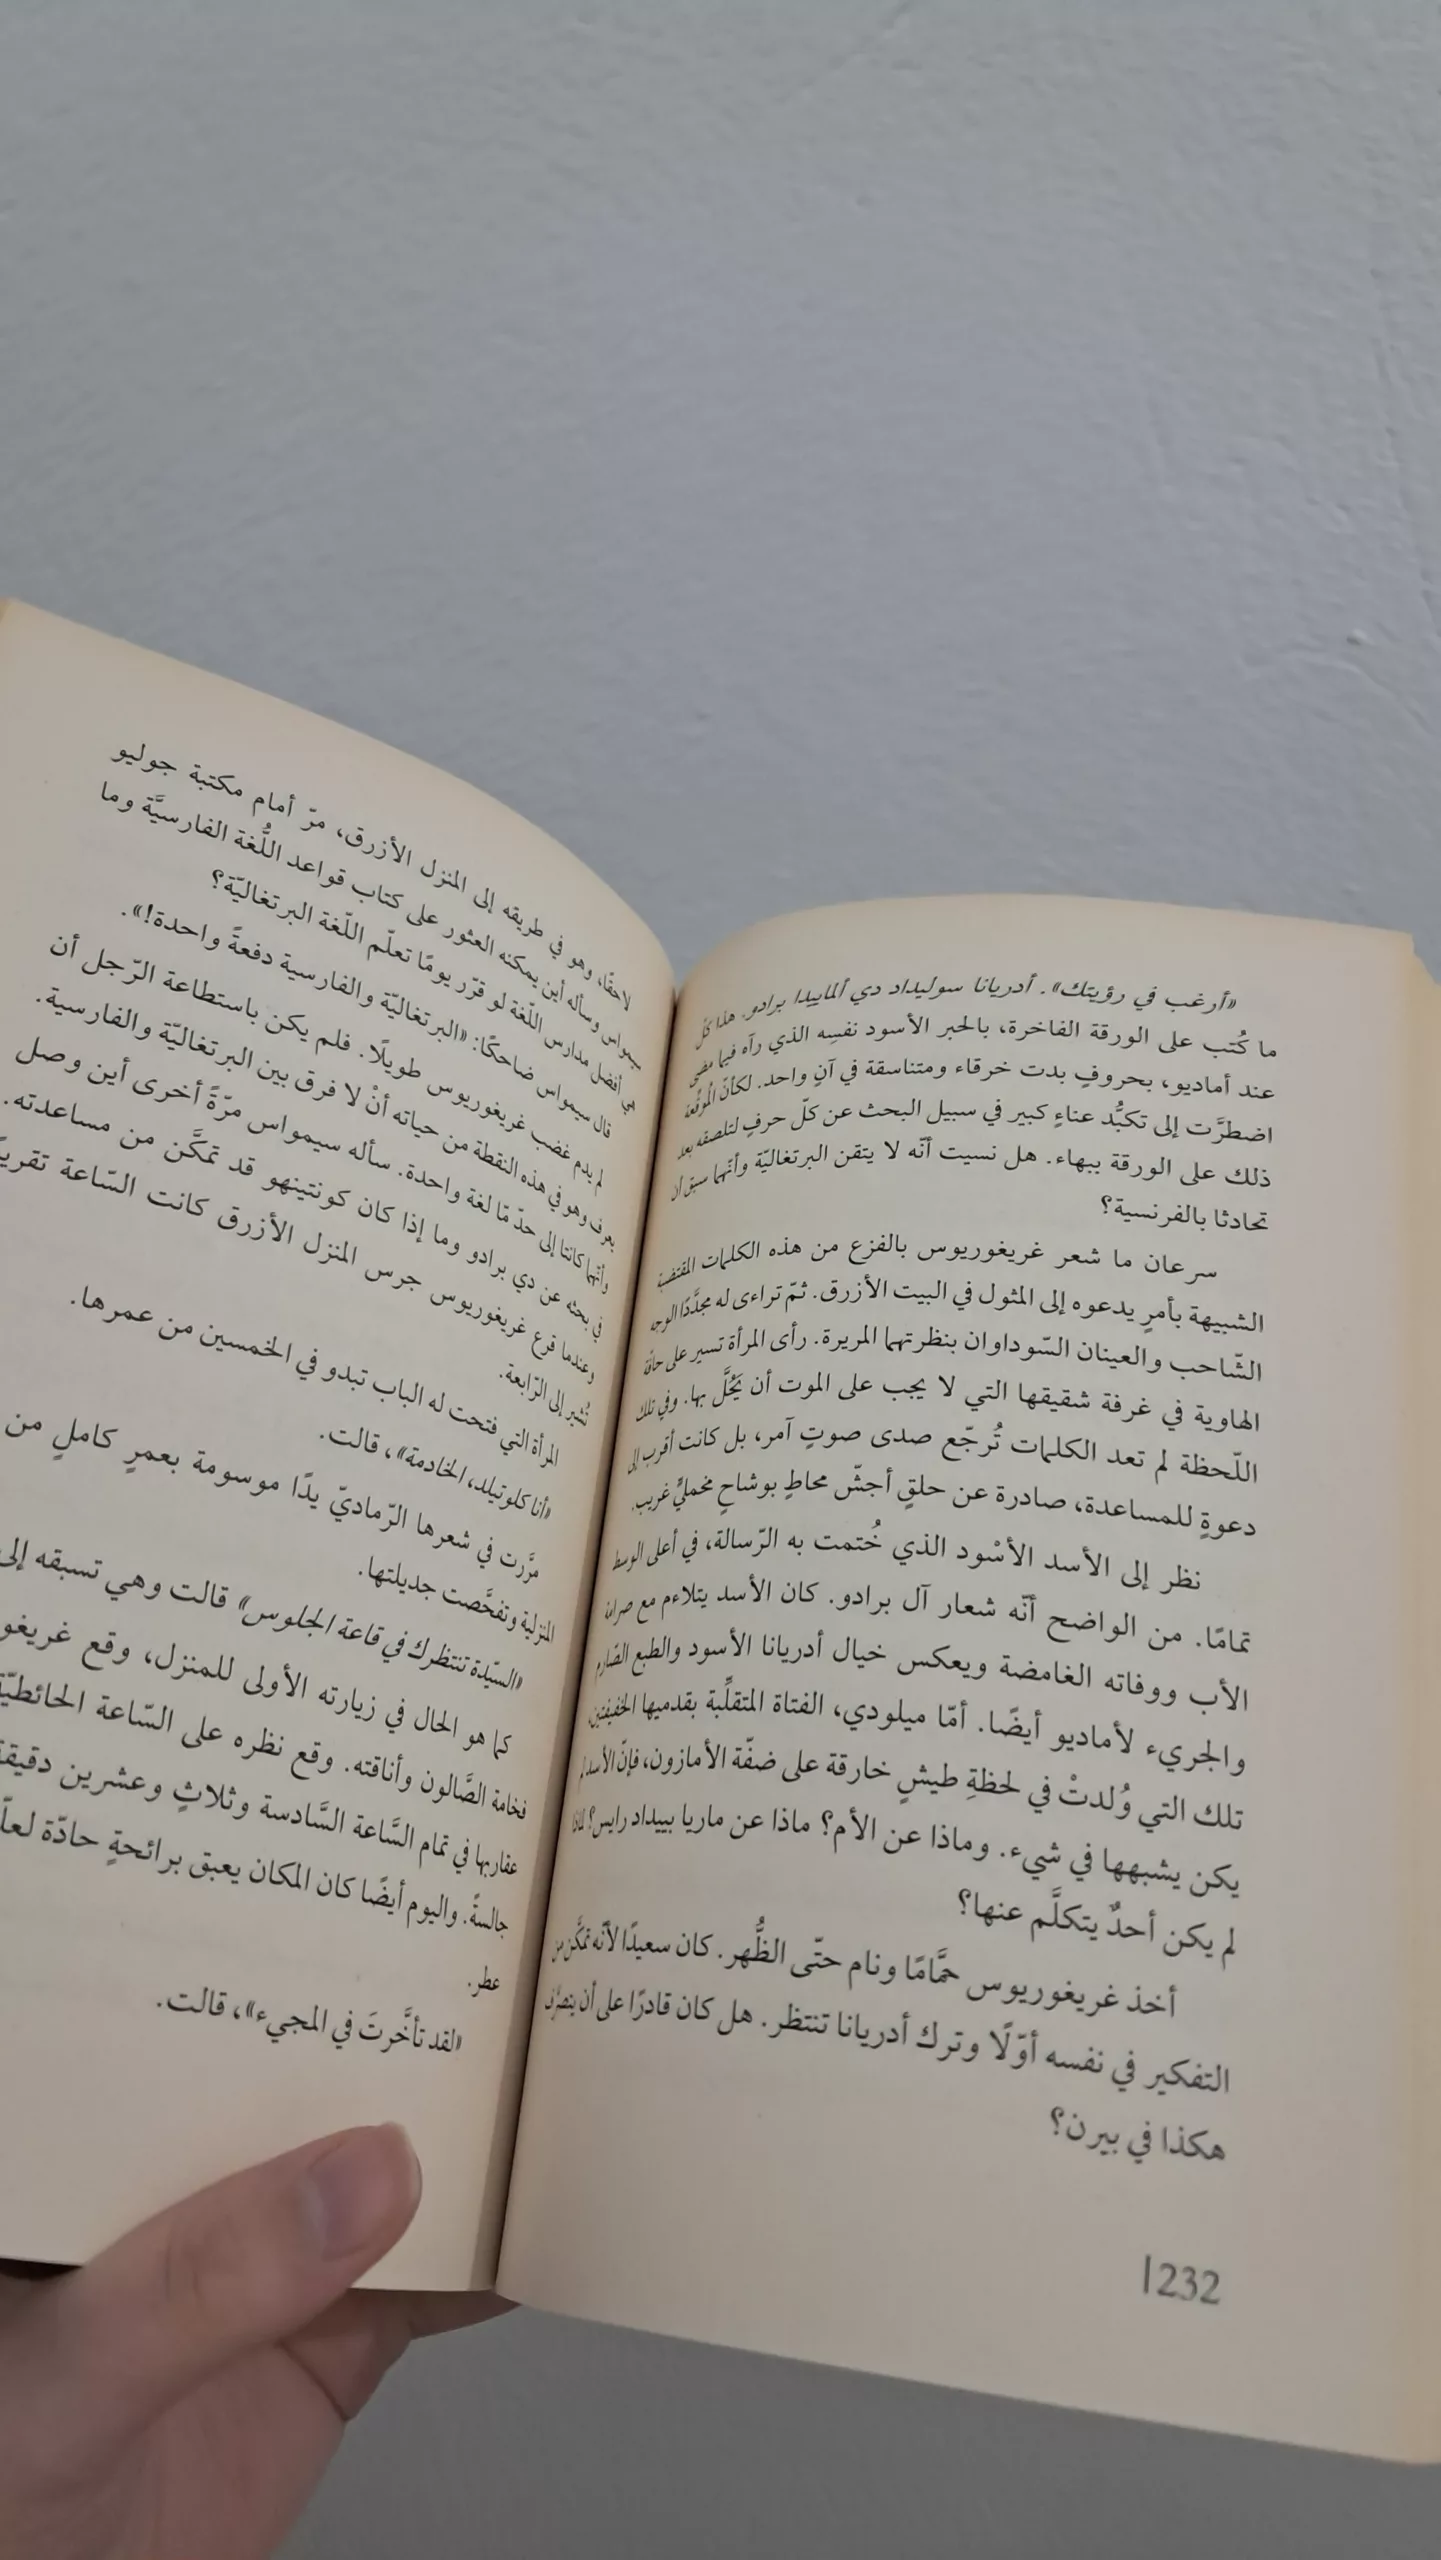 «أرغب في رؤيتك». أدريانا سوليداد دي ألماييدا برادو. هذا كلّ
ما كُتب على الورقة الفاخرة، بالحبر الأسود نفسِه الذي رآه فيما مضى
عند أماديو، بحروفٍ بدت خرقاء ومتناسقة في آنٍ واحد. لكأنّ المُوقِّعة
اضطرَّت إلى تكبُّد عناءٍ كبير في سبيل البحث عن كلّ حرفٍ لتلصقه بعد
ذلك على الورقة ببهاء. هل نسيت أنّه لا يتقن البرتغاليّة وأنّهما سبق أن
تحادثا بالفرنسية؟
سرعان ما شعر غريغوريوس بالفزع من هذه الكلمات المقتضبة
الشبيهة بأمرٍ يدعوه إلى المثول في البيت الأزرق. ثمّ تراءى له مجدَّدًا الوجه
الشّاحب والعينان السّوداوان بنظرتهما المريرة. رأى المرأة تسير على حافّة
الهاوية في غرفة شقيقها التي لا يجب على الموت أن يَحُلَّ بها. وفي تلك
اللّحظة لم تعد الكلمات تُرجّع صدى صوتٍ آمر، بل كانت أقرب إلى
دعوةٍ للمساعدة، صادرة عن حلقٍ أجشّ محاطٍ بوشاحٍ مخمليٍّ غريب.
نظر إلى الأسد الأسْود الذي خُتمت به الرّسالة، في أعلى الوسط
تمامًا. من الواضح أنّه شعار آل برادو. كان الأسد يتلاءم مع صرامة
الأب ووفاته الغامضة ويعكس خيال أدريانا الأسود والطبع الصّارم
والجريء لأماديو أيضًا. أمّا ميلودي، الفتاة المتقلِّبة بقدميها الخفيفتين،
تلك التي وُلدتْ في لحظةِ طيشٍ خارقة على ضفّة الأمازون، فإنّ الأسد لم
يكن يشبهها في شيء. وماذا عن الأم؟ ماذا عن ماريا بييداد رايس؟ لماذا
لم يكن أحدٌ يتكلَّم عنها؟
أخذ غريغوريوس حمَّامًا ونام حتّى الظُّهر. كان سعيدًا لأنّه تمكَّن من
التفكير في نفسه أوّلًا وترك أدريانا تنتظر. هل كان قادرًا على أن يتصرَّف
هكذا في بيرن؟
232|
لاحقًا، وهو في طريقه إلى المنزل الأزرق، مرّ أمام مكتبة جوليو
سيمواس وسأله أين يمكنه العثور على كتاب قواعد اللُّغة الفارسيَّة وما
هي أفضل مدارس اللّغة لو قرّر يومًا تعلّم اللّغة البرتغاليّة؟
قال سيمواس ضاحكًا: «البرتغاليّة والفارسية دفعةً واحدة!».
لم يدم غضب غريغوريوس طويلًا. فلم يكن باستطاعة الرّجل أن
يعرف وهو في هذه النقطة من حياته أنْ لا فرق بين البرتغاليّة والفارسية.
وأنّهما كانتا إلى حدّ مّا لغة واحدة. سأله سيمواس مرّةً أخرى أين وصل
في بحثه عن دي برادو وما إذا كان كونتينهو قد تمكَّن من مساعدته.
وعندما قرع غريغوريوس جرس المنزل الأزرق كانت السّاعة تقريبًا
تُشير إلى الرّابعة.
المرأة التي فتحت له الباب تبدو في الخمسين من عمرها.
«أنا كلوتيلد، الخادمة»، قالت.
مرَّرت في شعرها الرّماديّ يدًا موسومة بعمرٍ كاملٍ من
المنزلية وتفحَّصت جديلتها.
«السّيّدة تنتظرك في قاعة الجلوس» قالت وهي تسبقه إلى
كما هو الحال في زيارته الأولى للمنزل، وقع غريغو
فخامة الصَّالون وأناقته. وقع نظره على السّاعة الحائطيّة
عقاربها في تمام السَّاعة السَّادسة وثلاثٍ وعشرين دقيقة
جالسةً. واليوم أيضًا كان المكان يعبق برائحةٍ حادّة لعلّ
عطر.
«لقد تأخَّرتَ في المجيء»، قالت.